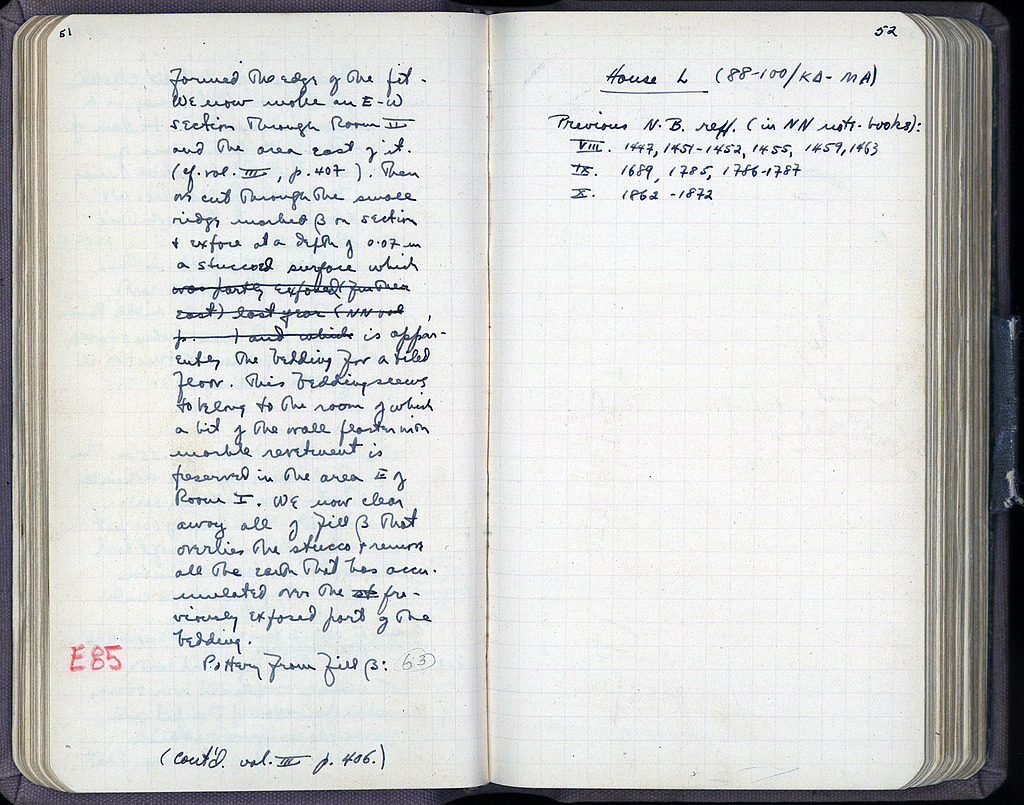 51
formed the edge of the pit.
We now make an E-W
section through Room II
and the area east of it.
(cf. vol. III, p. 407). Then
we cut through the small
ridge marked β on section
+ expose at a depth of 0.07 m
a stuccoed surface which
was partly exposed (further
east) last year (NN vol
p. ) and which is appar-
ently the bedding for a tiled
floor. This bedding seems
to belong to the room of which
a bit of the wall plaster with
marble revetment is
preserved in the area E of
Room I. We now clear
away all of fill β that
overlies the stucco + remove
all the earth that has accu-
mulated over the st pre-
viously exposed part of the
bedding.
E85
Pottery from fill β: 63
(cont'd. vol. III p. 406.)
52
House L (88-100/KA-MA)
Previous N.B. reff. (in NN note-books):
VIII. 1447, 1451-1452, 1455, 1459, 1463
IX. 1689, 1785, 1786-1787
X. 1862-1872